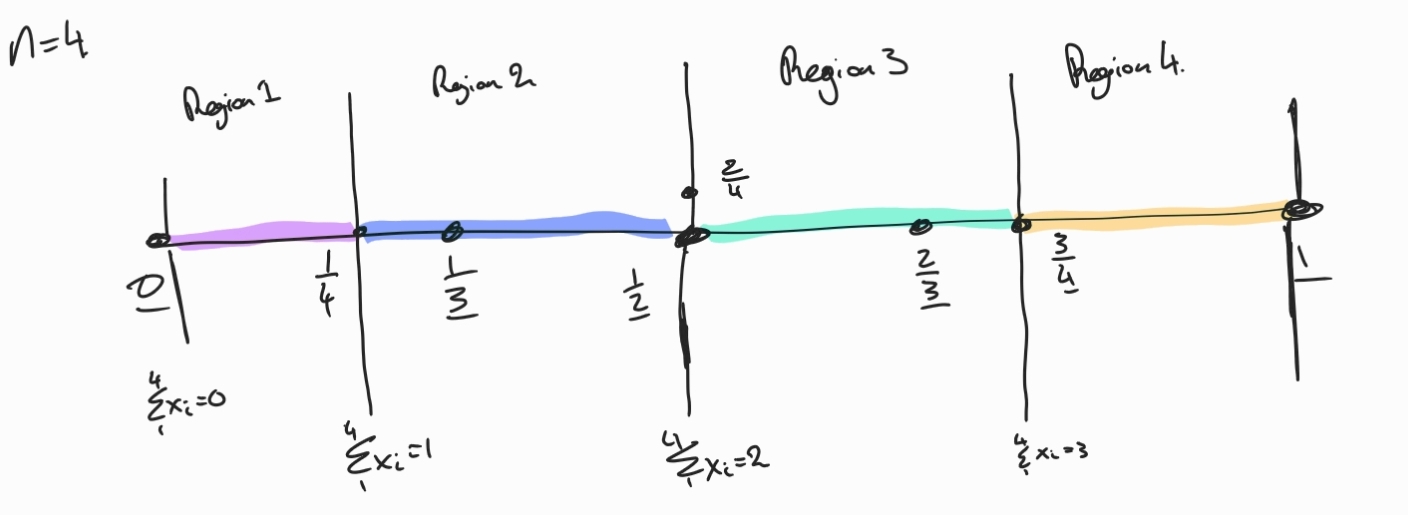 n=4
Region 1
Region 2
Region 3
Region 4.
2/4
0
1/4
1/3
1/2
2/3
3/4
1
4 Σ 1 xᵢ=0
4 Σ 1 xᵢ=1
4 Σ 1 xᵢ=2
4 Σ 1 xᵢ=3